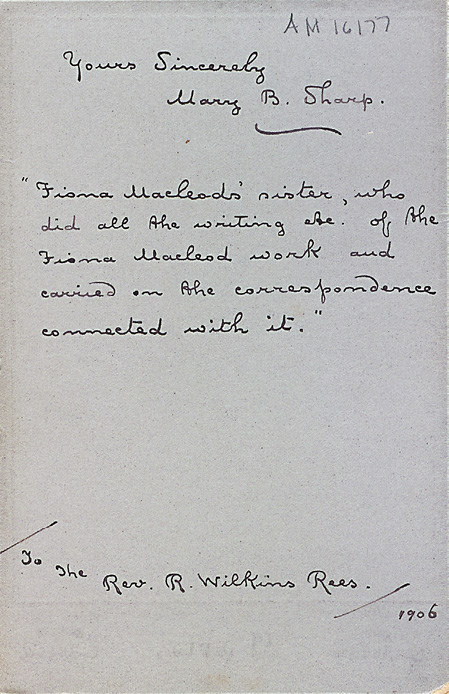 AM 16177
Yours Sincereby
Mary B. Sharp.
"Fiona Macleods' sister, who
did all the writing etc. of the
Fiona Macleod work and
carried on the correspondence
connected with it."
To The Rev. R. Wilkins Rees.
1906